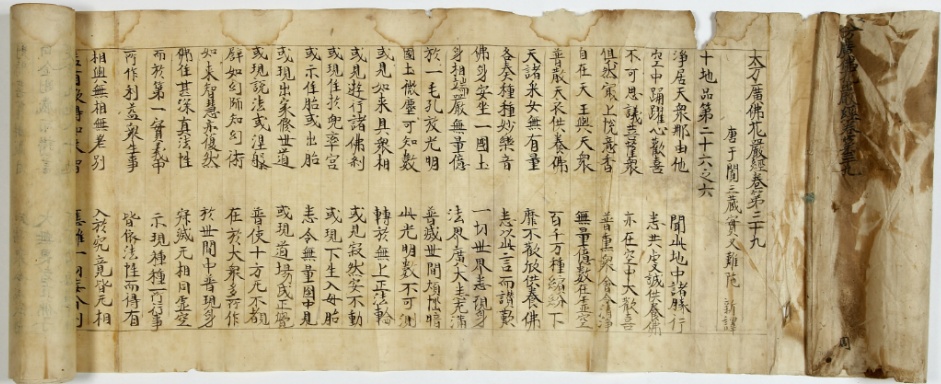 大方廣佛花嚴經卷第三十九
唐于闐三藏實叉難陁 新譯
十地品第二十六之六
淨居天衆那由他 聞此地中諸勝行
空中踊躍心歡喜 悉共虔誠供養佛
不可思議菩薩衆 亦在空中大歡喜
俱然最上悅意香 普熏衆會令清淨
自在天王與天衆 無量億數在虛空
普散天衣供養佛 百千万種繽紛下
天諸采女無有量 靡不歡欣供養佛
各奏種種妙樂音 悉以此言而讚歎
佛身安坐一國土 一切世界悉現身
身相端嚴無量億 法界廣大悉充滿
於一毛孔放光明 普滅世間煩惱暗
國土微塵可知數 此光明數不可測
或見如來具衆相 轉於無上正法輪
或見遊行諸佛剎 或見寂然安不動
或現住於兜率宮 或現下生入母胎
或示住胎或出胎 悉令無量國中見
或現出家修世道 或現道場成正覺
或現說法或涅槃 普使十方无不覩
譬如幻師知幻術 在於大衆多所作
如來智慧亦復然 於世間中普現身
佛住甚深真法性 寂滅无相同虛空
而於第一實義中 示現種種所行事
所作利益衆生事 皆依法性而得有
相與無相無差別 入於究竟皆无相